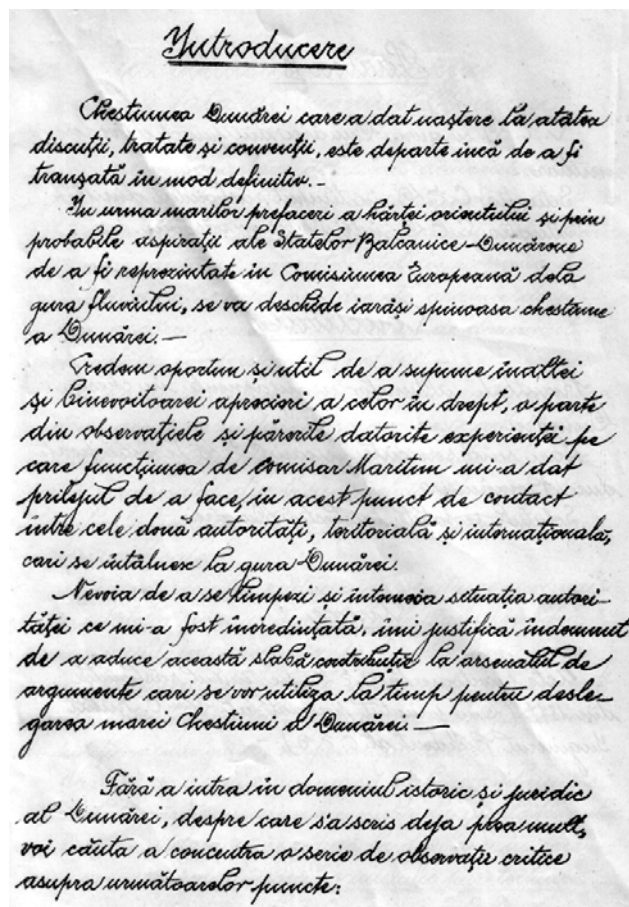 Introducere
Chestiunea Dunărei care a dat naștere la atâtea
discuții, tratate și convenții, este departe încă de a fi
tranșată în mod definitiv. -
In urma marilor prefaceri a hărței orientului și prin
probabile aspirații ale Statelor Balcanice-Dunărene
de a fi reprezintate in Comisiunea Europeană dela
gura fluviului, se va deschide iarăși spinoasa chestiune
a Dunărei. —
Credem oportun și util de a supune înaltei
și binevoitoarei aprecieri a celor în drept, o parte
din observațiele și părerile datorite experienței pe
care funcțiunea de comisar Maritim mi-a dat
prilejul de a face, in acest punct de contact
între cele două autorități, teritorială și internațională,
cari se intâlnesc la gura Dunărei.
Nevoia de a se limpezi și întemeia situația autori-
tăței ce mi-a fost incredințată, imi justifică îndemnul
de a aduce această slabă contribuție la arsenalul de
argumente cari se vor utiliza la timp pentru desle-
garea marei Chestiuni a Dunărei. —
Fără a intra in domeniul istoric și juridic
al Dunărei, despre care s'a scris deja prea mult,
voi căuta a concentra o serie de observații critice
asupra următoarelor puncte: